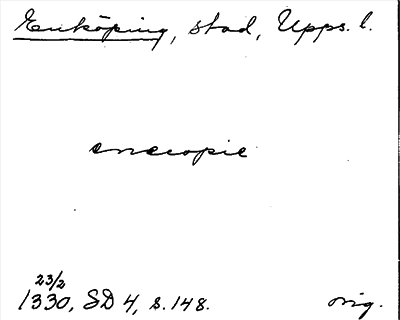 Enköping, stad, Upps. l.
enecopie
23/2
1330, SD 4, s. 148. orig.